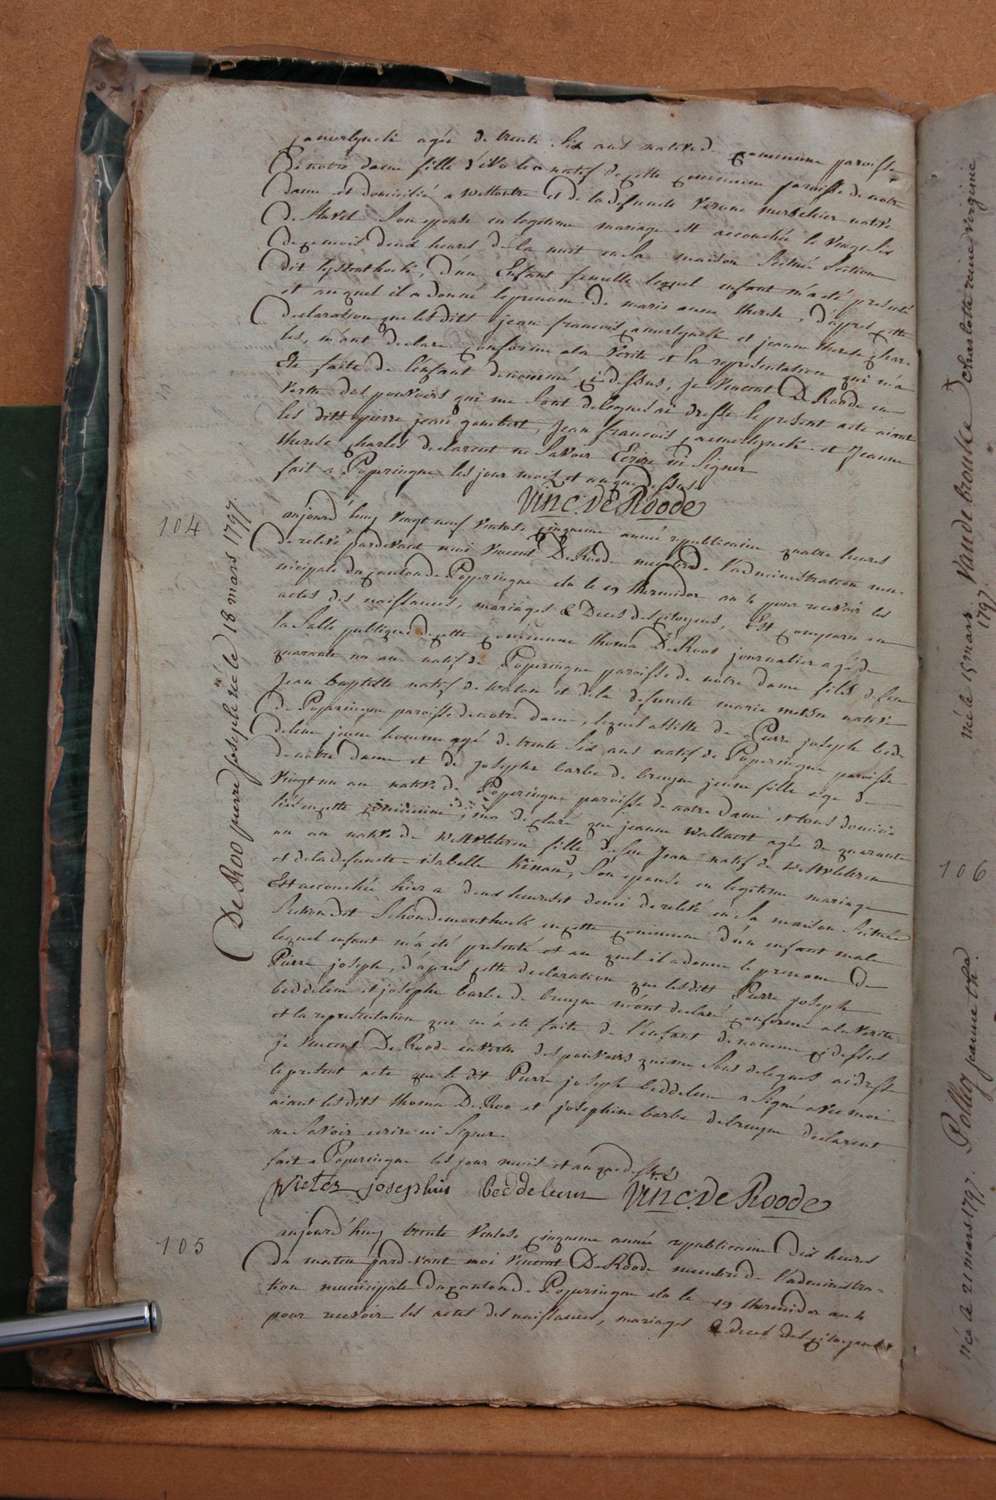 camerlynck agée de trente six ans native de commune paroisse
de notre dame fille d'ive leo natif de cette commune paroisse de notre
dame et domicilié a wattoutre et de la defuncte verene merschier native
de Stavel Son epouse en legitime mariage est accouchée le vingt six
de ce mois deux heures de la nuit en sa maison Scituée Section
dit, d'un Enfant femelle lequel enfant m'a été présenté
et auquel il a donné le prenom de marie anne therese, d'après cette
declaration que lesdits jean francois camerlynck et jeanne therese char-
les, m'ont declaré conforme a la verité et la representation qui m'a
Eté faite de l'enfant denommé cidessus, je Vincent De Roode en
vertu des pouvoirs qui me sont delegués ai dressé le present acte aiant
les dits pierre jean gombert, jean francois camerlynck et Jeanne
therese charles declarent ne Savoir Ecrire ni Signer
fait a Poperingue les jour mois et an que dessus
Vinc. De Roode
104
De Roo pierre joseph né le 18 mars 1797.
aujourd'huy vingt neuf ventose cinquieme année republicaine quatre heures
de relevé pardevant moi Vincent De Roode membre de l'administration mu-
nicipale du canton de Poperingue elu le 19 thermidor an 4 pour recevoir les
actes des naissances, mariages & Deces des citoyens, Est comparu en
la Salle publique de cette commune thoma De Roo journalier agé de
quarante un an natif de Poperingue paroisse de notre dame fils de feu
Jean Baptiste natif de watou et de la defuncte marie metsu native
de Poperingue paroisse de notre dame, lequel assisté de Pierre joseph bed-
deleem jeune homme agé de trente Six ans natif de Poperingue paroisse
de notre dame et de josephe barbe de bruyne jeune fille agé de
vingt un an native de Poperingue paroisse de notre dame et tous domici-
liés en cette commune, m'a declaré que jeanne wallaert agée de quarante
un an native de westvleteren fille de feu Jean natif de westvleteren
et de la defuncte isabelle, Son epouse en legitime mariage
Est accouchée hier a deux heures et demie de relevé en sa maison Scituée
Section dit Schoudemonthoek en cette commune d'un enfant male
lequel enfant m'a été presenté et au quel il a donné le prenom de
Pierre joseph, d'après cette declaration que lesdits Pierre joseph
beddeleem et josephe barbe de bruyne m'ont declaré conforme a la verité
et la representation que m'a été faite de l'enfant denommé cidessus
je Vincent De Roode en vertu des pouvoirs qui me sont delegués ai dressé
le present acte que le dit Pierre joseph beddeleem a Signé avec moi
aiant lesdits thoma De Roo et josephine barbe de bruyne declarent
ne Savoir ecrire ni Signer
fait a Poperingue les jour mois et an que dessus
Pieter josephus beddeleem Vinc. De Roode
105
aujourd'huy trente ventose cinquieme année republicaine dix heures
du matin pardevant moi Vincent De Roode membre de l'administra-
tion municipale du canton de Poperingue elu le 19 thermidor an 4
pour recevoir les actes des naissances, mariages & deces des citoyens
charlotte reine virginie
Vande broucke
née le 19 mars
1797.
106
Polley jeanne cth.
née le 21 mars 1797.